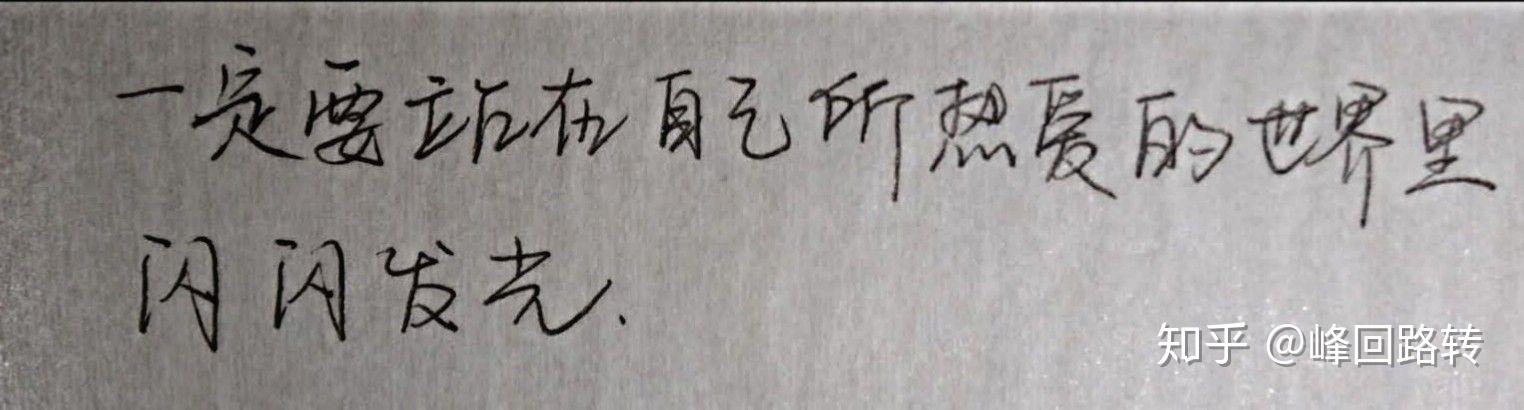 一定要站在自己所热爱的世界里
闪闪发光.
知乎 @峰回路转